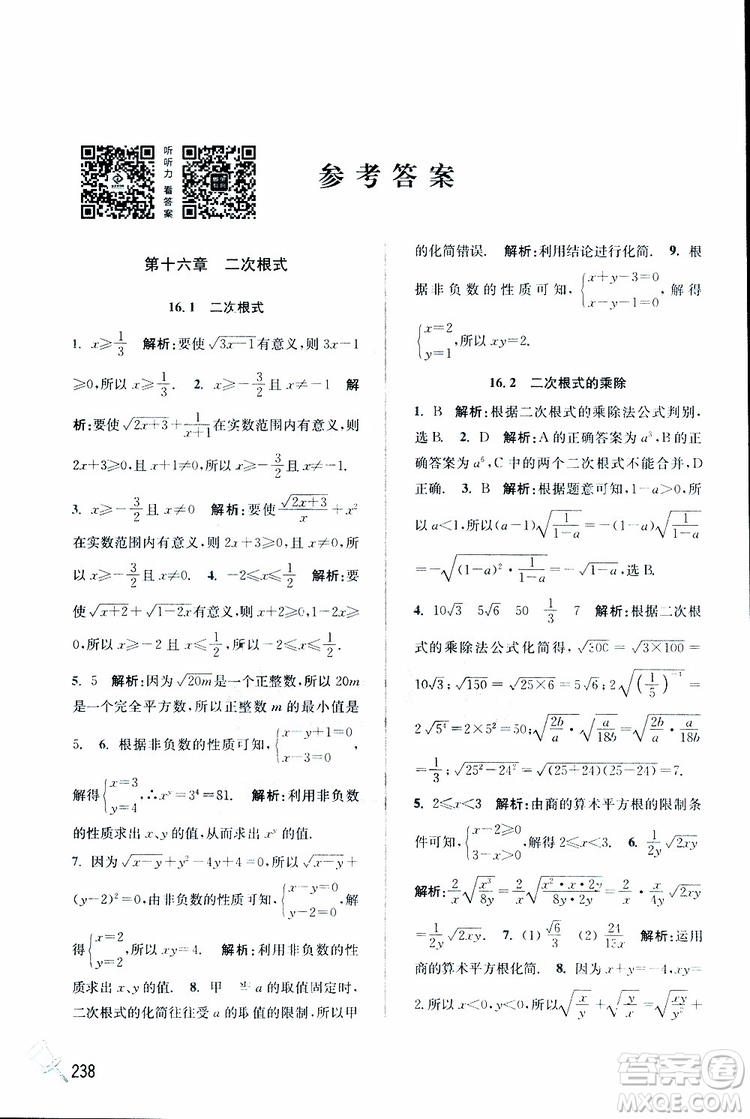 听听力 看答案
参考答案
第十六章 二次根式
16.1 二次根式
1. x≥1/3 解析:要使√(3x-1)有意义,则 3x-1
≥0,所以 x≥1/3. 2. x≥-3/2且 x≠-1 解
析:要使√(2x+3)+1/(x+1)在实数范围内有意义,则
2x+3≥0,所以 x≥-3/2且 x≠-1.
3. x≥-3/2且 x≠0 解析:要使√(2x+3)/x+x⁰
在实数范围内有意义,则 2x+3≥0,所以 x≥
-3/2且 x≠0. 4. -2≤x≤1/2 解析:要使
√(x+2)+√(1-2x)在实数范围内有意义,则 x+2
≥0,所以 x≥-2 且 x≤1/2,所以-2≤x≤1/2.
5. 5 解析:因为√(20m)是一个正整数,所以 20m
是一个完全平方数,所以 m 的最小值是
5. 6. 根据非负数的性质可知,{x-y+1=0 x-3=0,
解得{x=3 y=4,∴xʸ=3⁴=81. 解析:利用非负数
的性质求出 x、y 的值,从而求出 xʸ 的值.
7. 因为√(x-y)+y²-4y+4=0,所以√(x-y)+
(y-2)²=0,由非负数的性质可知{x-y=0 y-2=0,解
得{x=2 y=2,所以 xy=4. 解析:利用非负数的性质
求出 x、y 的值. 8. 甲 的取值固定时,
二次根式的化简往往受 的取值的限制,所以甲
的化简错误. 解析:利用结论进行化简. 9. 根
据非负数的性质可知,{x+y-3=0 x-2y=0,解得
{x=2 y=1,所以 xy=2.
16.2 二次根式的乘除
1. B 解析:根据二次根式的乘除法公式判别,
选 B. 2. D 解析:A 的正确答案为 a³,B 的正
确答案为 a⁶,C 中的两个二次根式不能合并,D
正确. 3. B 解析:根据题意可知,1-a>0,所
以 a<1,所以(a-1)√(1/(1-a))=-(1-a)√(1/(1-a))
=-√((1-a)²·1/(1-a))=-√(1-a),选 B.
4. 10√3 5√6 50 1/3 7 解析:根据二次根
式的乘除法公式化简得,√300=√(3×100)=
10√3;√150=√(25×6)=5√6;2√5·√((1/5)⁻¹)=
2√5²=2×5²=50;√(2b/a)·√(a/18b)=√(2b/a·a/18b)=
1/3;√(25²-24²)=√((25-24)(25+24))=7.
5. 2≤x<3 解析:由商的算术平方根的限制条
件可知,{x-2≥0 3-x>0,解得 2≤x<3. 6. 1/2y √(2xy)
解析:2/x√(x³/8y)=2/x√(x²·x·2y/8y·2y)=2/x·x/4y√(2xy)=
1/2y√(2xy). 7. (1) √6/3 (2) 24/13x 解析:运用
商的算术平方根化简. 8. 因为 x+y=-4,xy=
2,所以 x<0,y<0,所以√(y/x)+√(x/y)=√(xy/x²)+√(xy/y²)
238